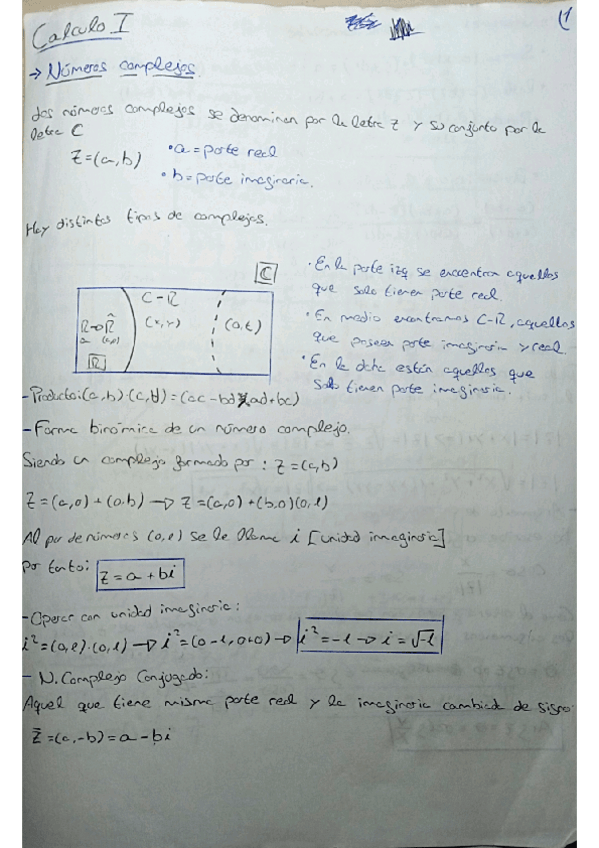 Calculo I
(1
→ Números complejos.
Los números complejos se denominan por la letra Z y su conjunto por la
letra C
Z=(a,b)
• a = parte real
• b = parte imaginaria.
Hay distintos tipos de complejos.
C
C-R
R→R̂
a (a,0)
(x,y)
(0,t)
R
• En la parte izq se encuentra aquellos
que solo tienen parte real.
• En medio encontramos C-R, aquellos
que poseen parte imaginaria y real.
• En la dcha están aquellos que
solo tienen parte imaginaria.
- Producto: (a,b)·(c,d)=(ac-bd, ad+bc)
- Forma binómica de un número complejo.
Siendo un complejo formado por: Z=(a,b)
Z=(a,0)+(0,b) → Z=(a,0)+(b,0)(0,1)
Al par de números (0,1) se le llama i [unidad imaginaria]
por tanto: Z=a+bi
- Operar con unidad imaginaria:
i²=(0,1)·(0,1) → i²=(0-1,0+0) → i²=-1 → i=√-1
- N. Complejo Conjugado:
Aquel que tiene misma parte real y la imaginaria cambiada de signo:
Z̄=(a,-b)=a-bi